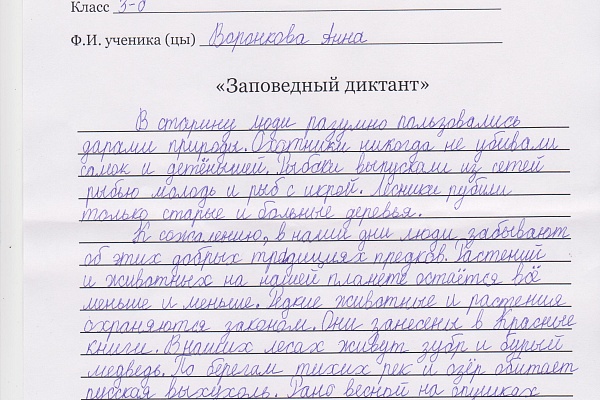 Класс 3-д
Ф.И. ученика (цы) Воронкова Анна
«Заповедный диктант»
В старину люди разумно пользовались
дарами природы. Охотники никогда не убивали
самок и детёнышей. Рыбаки выпускали из сетей
рыбью молодь и рыб с икрой. Лесники рубили
только старые и больные деревья.
К сожалению, в наши дни люди забывают
об этих добрых традициях предков. Растений
и животных на нашей планете остаётся всё
меньше и меньше. Редкие животные и растения
охраняются законом. Они занесены в Красные
книги. В наших лесах живут зубр и бурый
медведь. По берегам тихих рек и озёр обитает
русская выхухоль. Рано весной на опушках